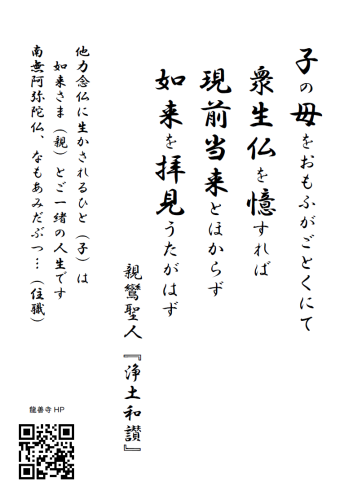 子の母をおもふがごとくにて
衆生仏を憶すれば
現前当来とほからず
如来を拝見うたがはず
親鸞聖人『浄土和讃』
他力念仏に生かされるひと（子）は
如来さま（親）とご一緒の人生です
南無阿弥陀仏、なもあみだぶつ…（住職）
龍善寺 HP